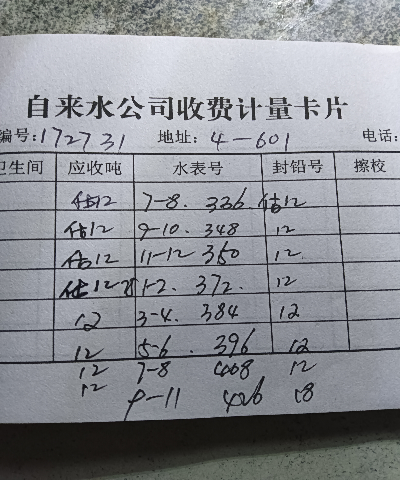 自来水公司收费计量卡片
编号:172731 地址: 4-601 电话:
卫生间 应收吨 水表号 封铅号 擦校
估12 7-8. 336 估12
估12 9-10. 348 12
估12 11-12 360 12.
估12 1-2. 372. 12
12 3-4. 384 12
12 5-6. 396 12
12 7-8 408 12
12 9-11 426 18